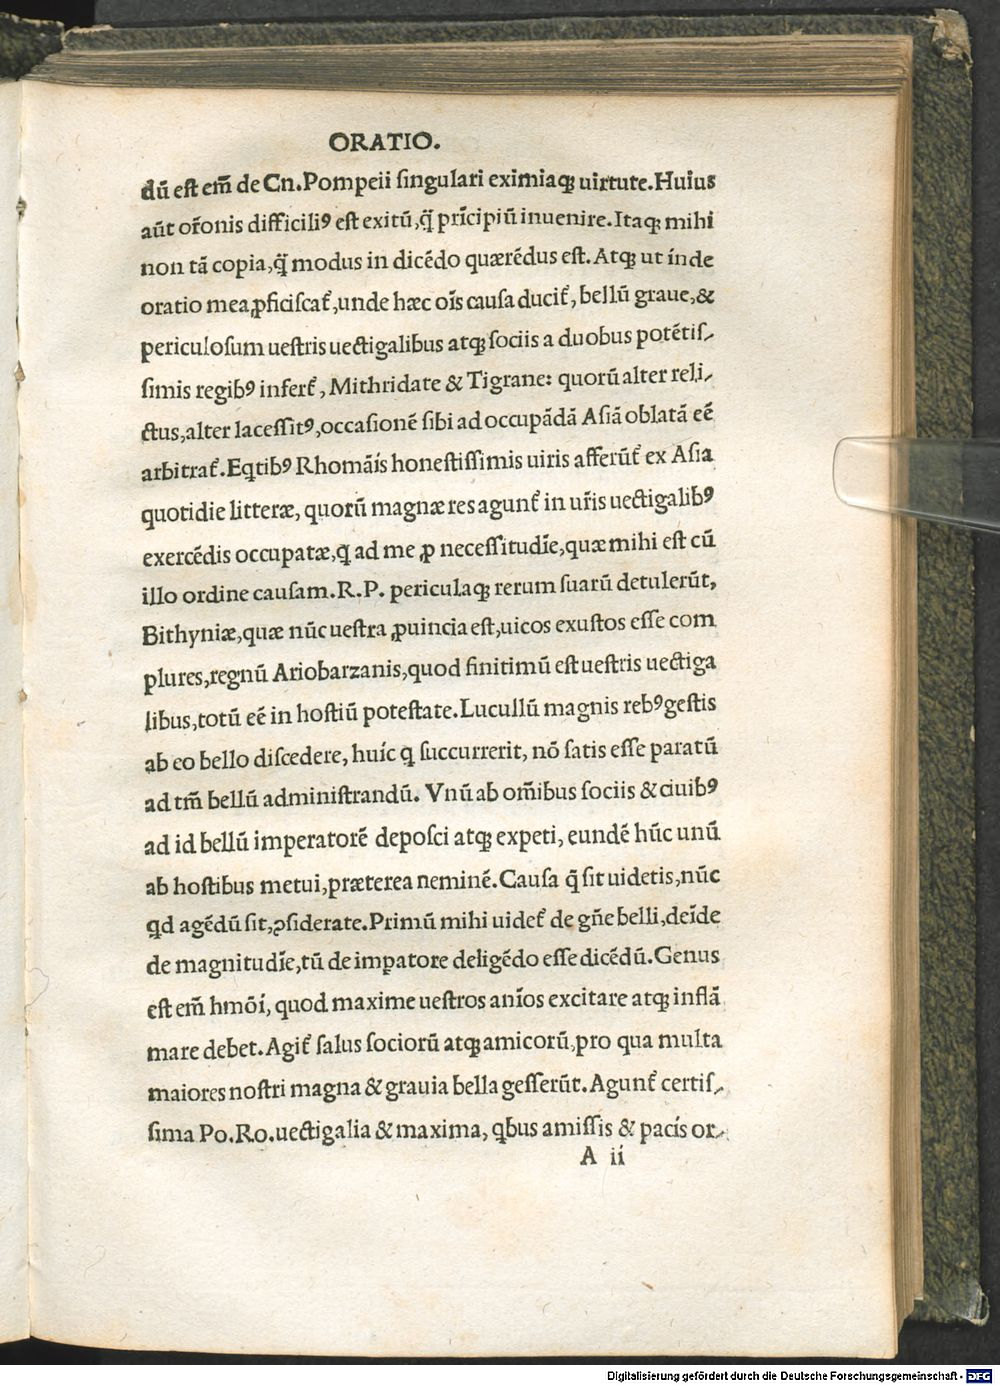 ORATIO.
dũ eſt em̃ de Cn.Pompeii ſingulari eximiaqꝫ uirtute.Huius
aũt or̃onis difficiliꝰ eſt exitũ,q̃ pri̅cipiũ inuenire.Itaqꝫ mihi
non tã copia,q̃ modus in dicẽdo quærẽdus eſt.Atqꝫ ut inde
oratio mea ꝓficiſcat᷑,unde hæc oi̅s cauſa ducit᷑, bellũ graue,&
periculoſum ueſtris uectigalibus atqꝫ ſociis a duobus potẽtiſ-
ſimis regibꝰ infert᷑, Mithridate & Tigrane: quorũ alter reli-
ctus,alter laceſſitꝰ,occaſionẽ ſibi ad occupãdã Aſiã oblatã eẽ
arbitrat᷑.Eqtibꝰ Rhomãis honeſtiſſimis uiris afferũt᷑ ex Aſia
quotidie litteræ, quorũ magnæ res agunt᷑ in ur̃is uectigalibꝰ
exercẽdis occupatæ,q ad me ꝓ neceſſitudi̅e,quæ mihi eſt cũ
illo ordine cauſam.R.P. periculaqꝫ rerum ſuarũ detulerũt,
Bithyniæ,quæ nũc ueſtra ꝓuincia eſt,uicos exuſtos eſſe com
plures,regnũ Ariobarzanis,quod finitimũ eſt ueſtris uectiga
libus,totũ eẽ in hoſtiũ poteſtate.Lucullũ magnis rebꝰ geſtis
ab eo bello diſcedere, huic q ſuccurrerit, nõ ſatis eſſe paratũ
ad tm̃ bellũ adminiſtrandũ. Vnũ ab om̃ibus ſociis & ciuibꝰ
ad id bellũ imperatorẽ depoſci atqꝫ expeti, eundẽ hũc unũ
ab hoſtibus metui,præterea neminẽ.Cauſa q̃ ſit uidetis,nũc
qd agẽdũ ſit,ꝯſiderate.Primũ mihi uidet᷑ de gñe belli,dei̅de
de magnitudi̅e,tũ de imꝑatore deligẽdo eſſe dicẽdũ.Genus
eſt em̃ hmõi, quod maxime ueſtros ani̅os excitare atqꝫ inflã
mare debet.Agit᷑ ſalus ſociorũ atqꝫ amicorũ,pro qua multa
maiores noſtri magna & grauia bella geſſerũt.Agunt᷑ certiſ-
ſima Po.Ro.uectigalia & maxima, qbus amiſſis & pacis or-
A ii
Digitalisierung gefördert durch die Deutsche Forschungsgemeinschaft - DFG